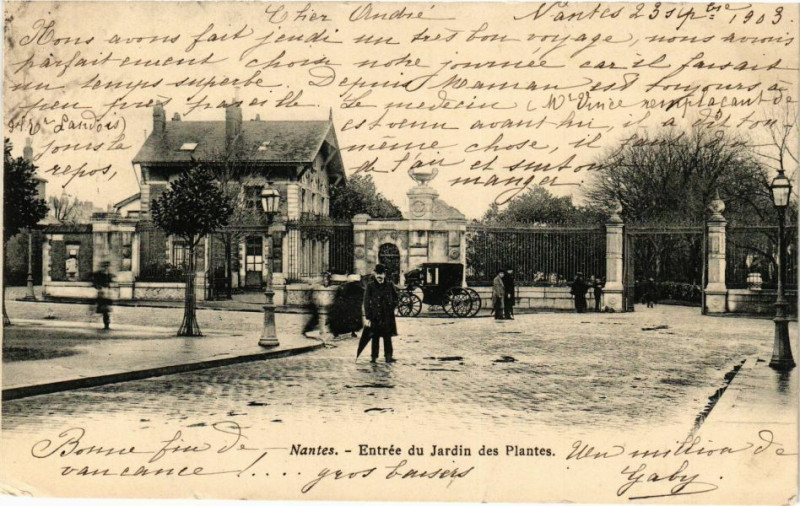 Cher André Nantes 23 sept.bre 1903.
Nous avons fait jeudi un très bon voyage, nous avons
parfaitement choisi notre journée car il faisait
un temps superbe. Depuis Maman est toujours à
peu près pareille. Le medecin (Mr Vince remplaçant de
Mr Landois) est venu avant hier, il a dit ton
jours le même chose, il faut du
repos, de l'air et surtout
manger
Nantes. - Entrée du Jardin des Plantes.
Bonne fin de
vancance !.... gros baisers
Un million de
Gaby.